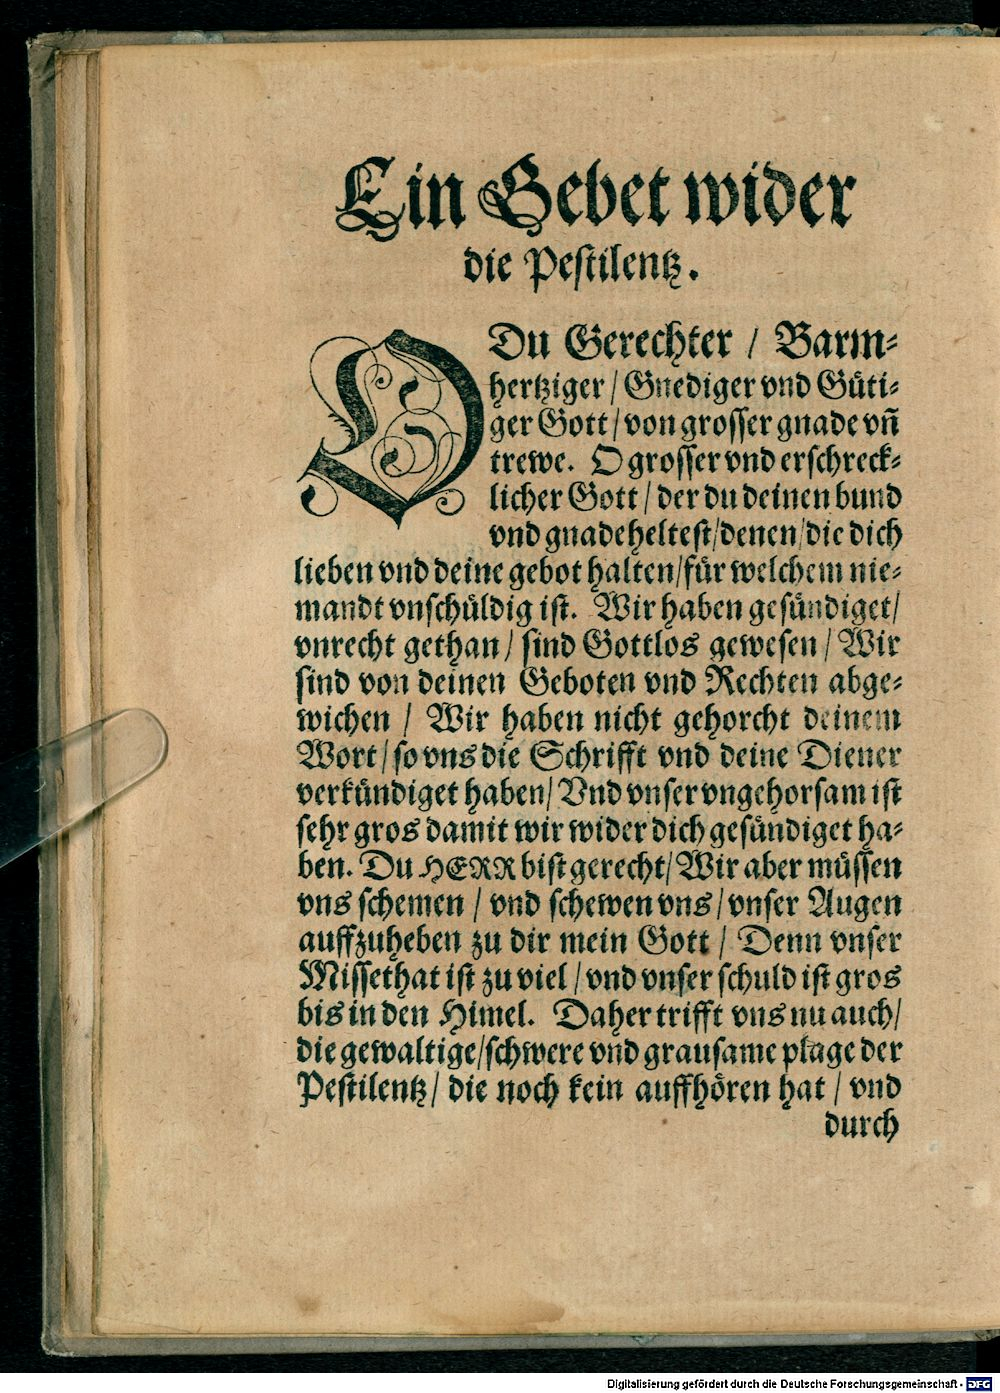 Ein Gebet wider
die Pestilentz.
O Du Gerechter / Barm⸗
hertziger / Gnediger vnd Güti⸗
ger Gott / von grosser gnade vn̄
trewe. O grosser vnd erschreck⸗
licher Gott / der du deinen bund
vnd gnade heltest / denen / die dich
lieben vnd deine gebot halten / für welchem nie⸗
mandt vnschüldig ist. Wir haben gesündiget /
vnrecht gethan / sind Gottlos gewesen / Wir
sind von deinen Geboten vnd Rechten abge⸗
wichen / Wir haben nicht gehorcht deinem
Wort / so vns die Schrifft vnd deine Diener
verkündiget haben / Vnd vnser vngehorsam ist
sehr gros damit wir wider dich gesündiget ha⸗
ben. Du HERR bist gerecht / Wir aber müssen
vns schemen / vnd schewen vns / vnser Augen
auffzuheben zu dir mein Gott / Denn vnser
Missethat ist zu viel / vnd vnser schuld ist gros
bis in den Himel. Daher trifft vns nu auch /
die gewaltige / schwere vnd grausame plage der
Pestilentz / die noch kein auffhören hat / vnd
durch
Digitalisierung gefördert durch die Deutsche Forschungsgemeinschaft - DFG